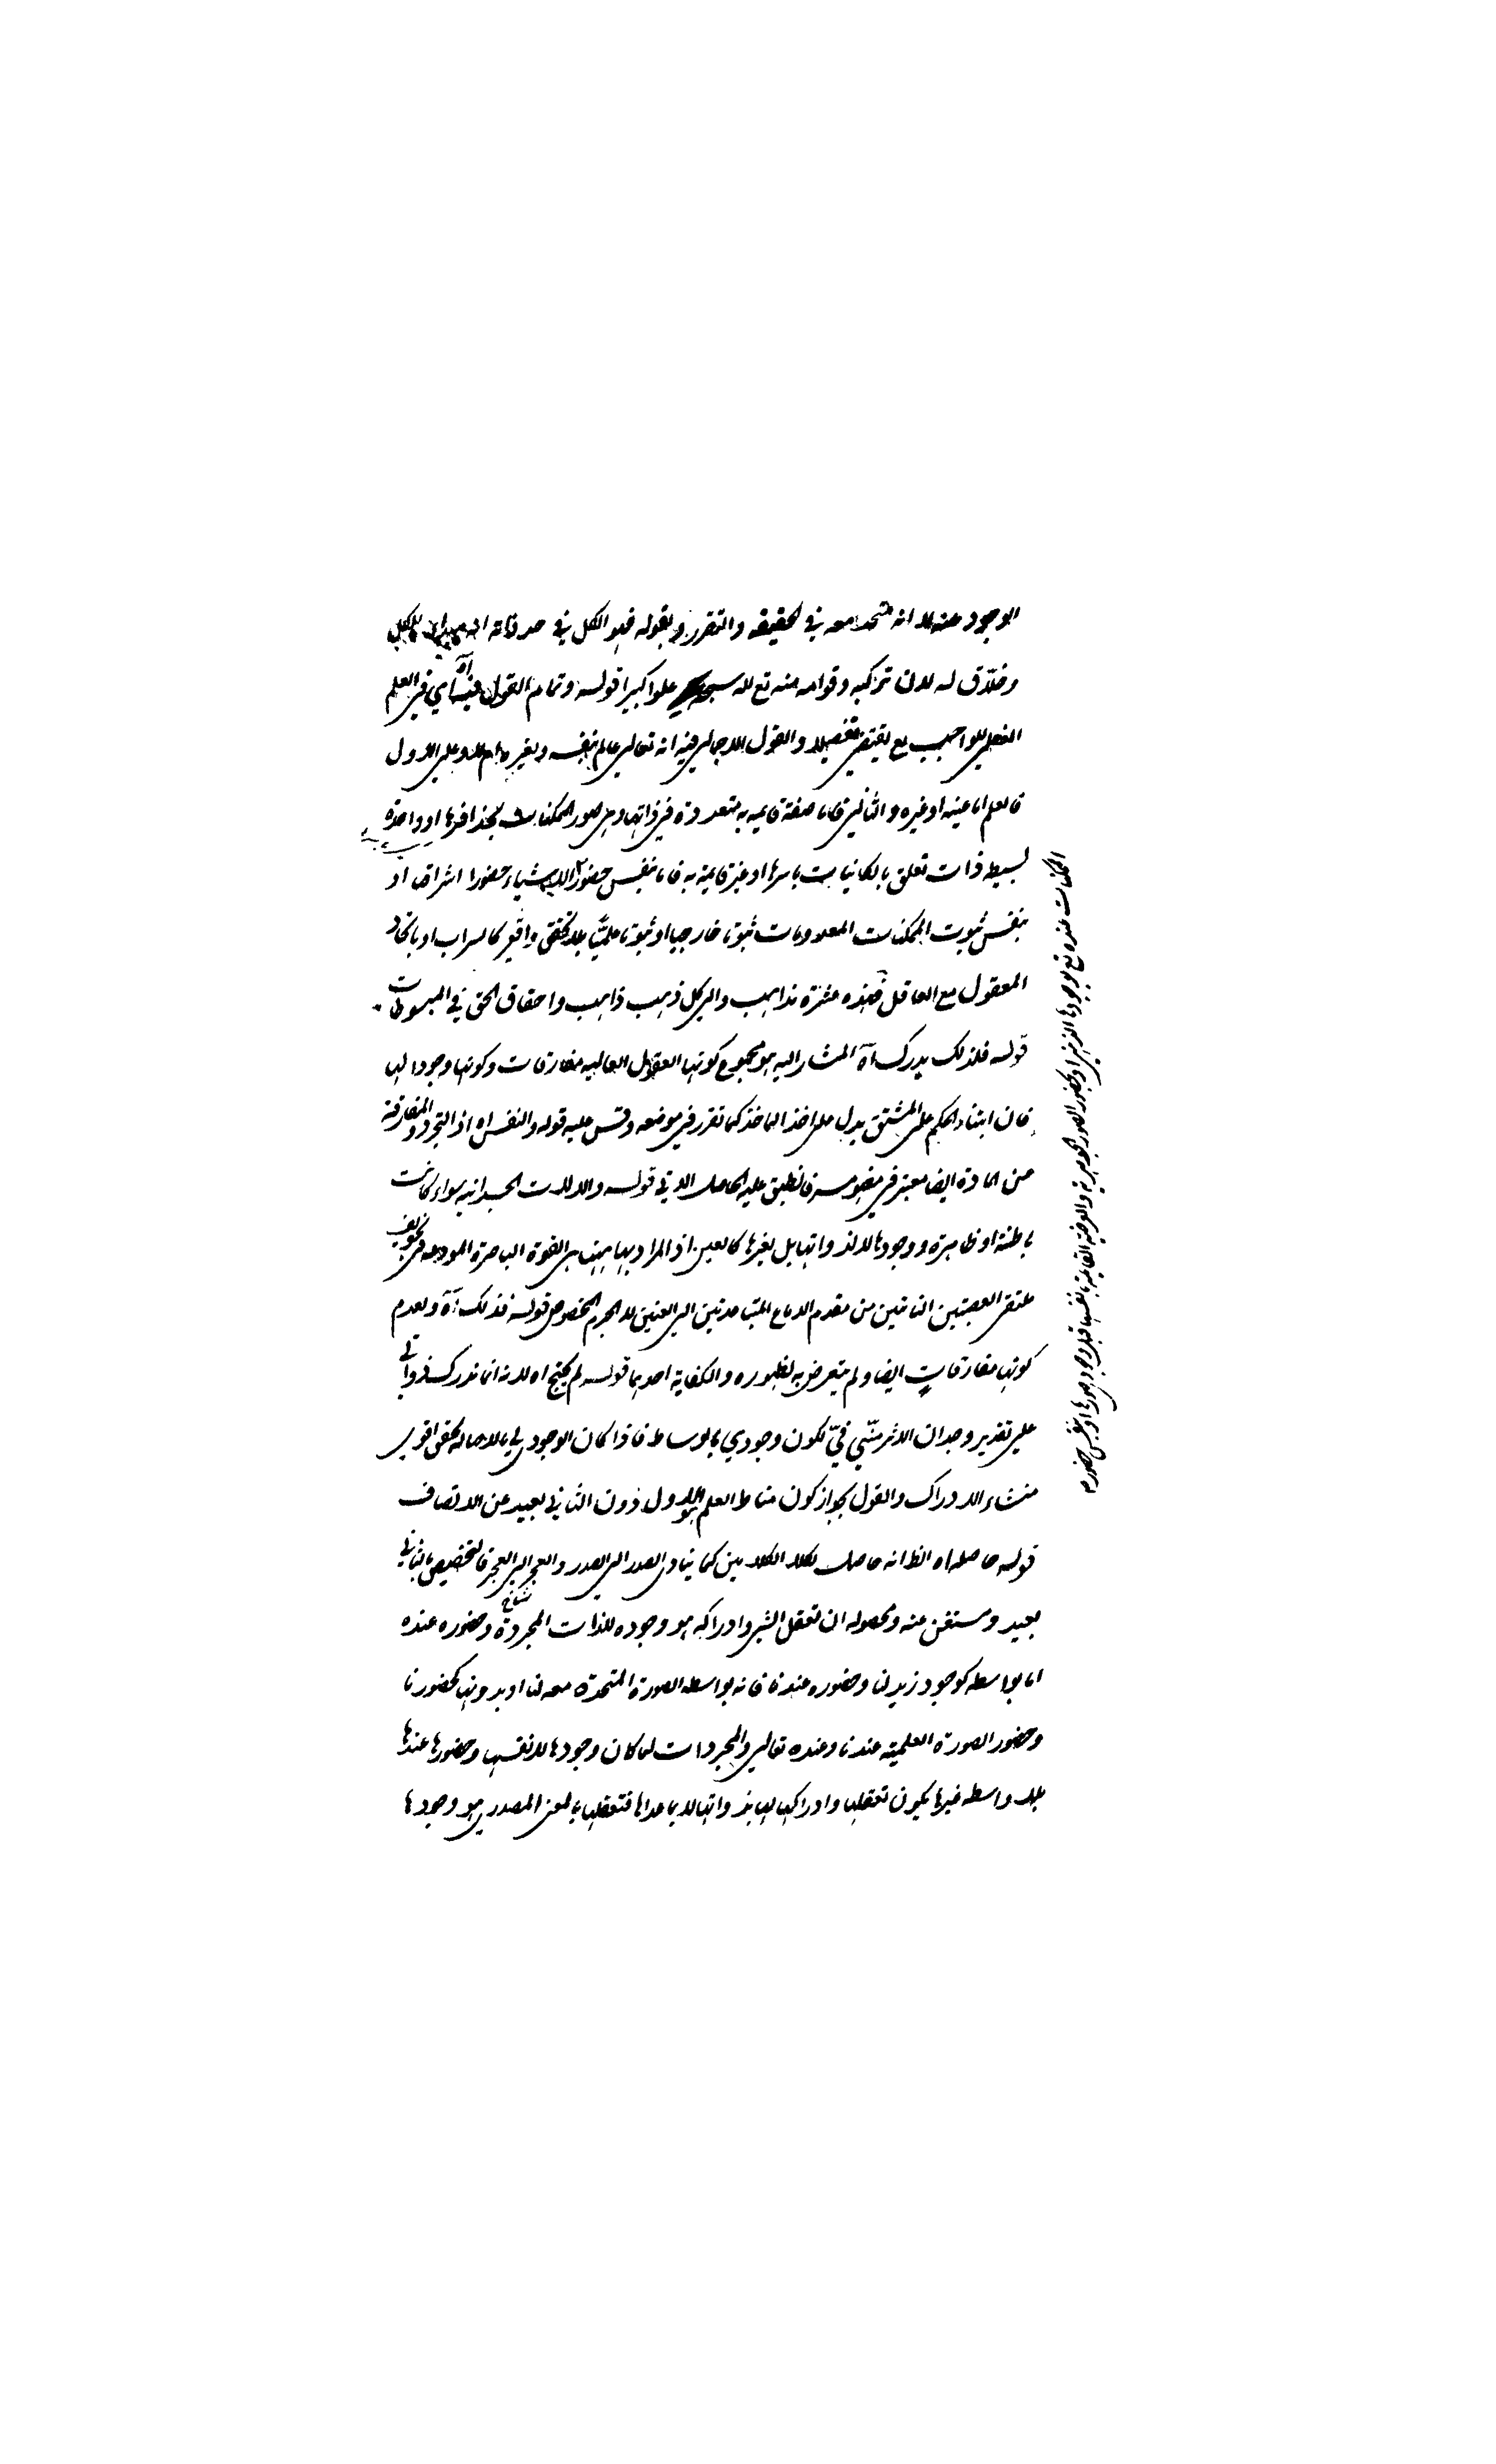 الوجود عنه لا انه متحد معه في الحقيقة والتقرر وبقوله فهو الكل في حد ذاته انه
وخلاق له لان تركبه وقوامه منه تع لله علوا كبيرا قوله وتمام القول فيه اه اي في العلم
الفعلي للواجب يع يقتضي تفصيلا والقول الاجمالي فيه انه تعالى عالم بنفسه وبغيره ام لا وعلى الاول
فالعلم اما عينه او غيره والثاني فاما صفة قايمة به متعددة في ذاتها وهي صور الممكنات بحذافرها او واحدة
بسيطه ذات تعلق بالكائنات باسرها او غير قايمة به فاما بنفس حضور الاشياء حضورا اشراقيا او
بنفس ثبوت الممكنات المعدومات ثبوتا خارجيا او ثبوتا علميا بلا تحقق واقعي كالسراب او باتحاد
المعقول مع العاقل فهذه عشرة مذاهب والى كل ذهب ذاهب واحقاق الحق في المبسوطات
قوله فلذلك يدرك اه المشار اليه هو مجموع كونها العقول العالية مفارقات وكونها وجودا لها
فان ابتناء الحكم على المشتق يدل على اخذ الماخذ كما تقرر في موضعه وقس عليه قوله والنفس اه اذ التجرد والمفارقة
من المادة ايضا معتبر في مفهومه فانطبق عليه الحاصل الاتي قوله والالات الجسدانيه سواء كانت
باطنة او ظاهرة ووجودها لا لذواتها بل لغيرها كالعين اذ المراد بها ههنا هي القوة الباصرة المودعه في تجويف
ملتقى العصبتين الناتين من مقدم الدماغ المتباعدتين الى العينين لا الجرم المخصوص قوله فذلك اه ولعدم
كونها مفارقات ايضا ولم يتعرض به لظهوره والكفاية احدهما قوله لم يحتج اه لانه انما ندرك ذواتي
على تقدير وجدان الاثر منّي فيّ لكون وجودي بالوساط فاذا كان الوجود لي بالاصاله تحقق اقوى
منشاء الادراك والقول بجواز كون مناط العلم هو الاول دون الثاني بعيد عن الانصاف
قوله حاصله اه الظ انه حاصل لكلا الكلامين كما ينادي الصدر الى الصدر والعجز الى العجز فالتخصيص بالثاني
بعيد ومستغن عنه ومحصوله ان تعقل الشي وادراكه هو وجوده للذات المجردة وحضوره عنده
اما بواسطه كوجود زيد لنا وحضوره عندنا فانه بواسطه الصورة المتحدة معه لنا او بدونها كحضورنا
وحضور الصورة العلمية عندنا وعنده تعالى والمجردات لما كان وجودها لانفسها وحضورها عندها
بلا واسطه غيرها يكون تعقلها وادراكها لها بذواتها لا بما عداها فتعقلها بالمعنى المصدري هو وجودها
الممكنات عنده تع لوجودها الذهني او بحضور الصور الجوهرية والعرضية القائمة بانفسها قبل وجود صورها او بنفس حضور